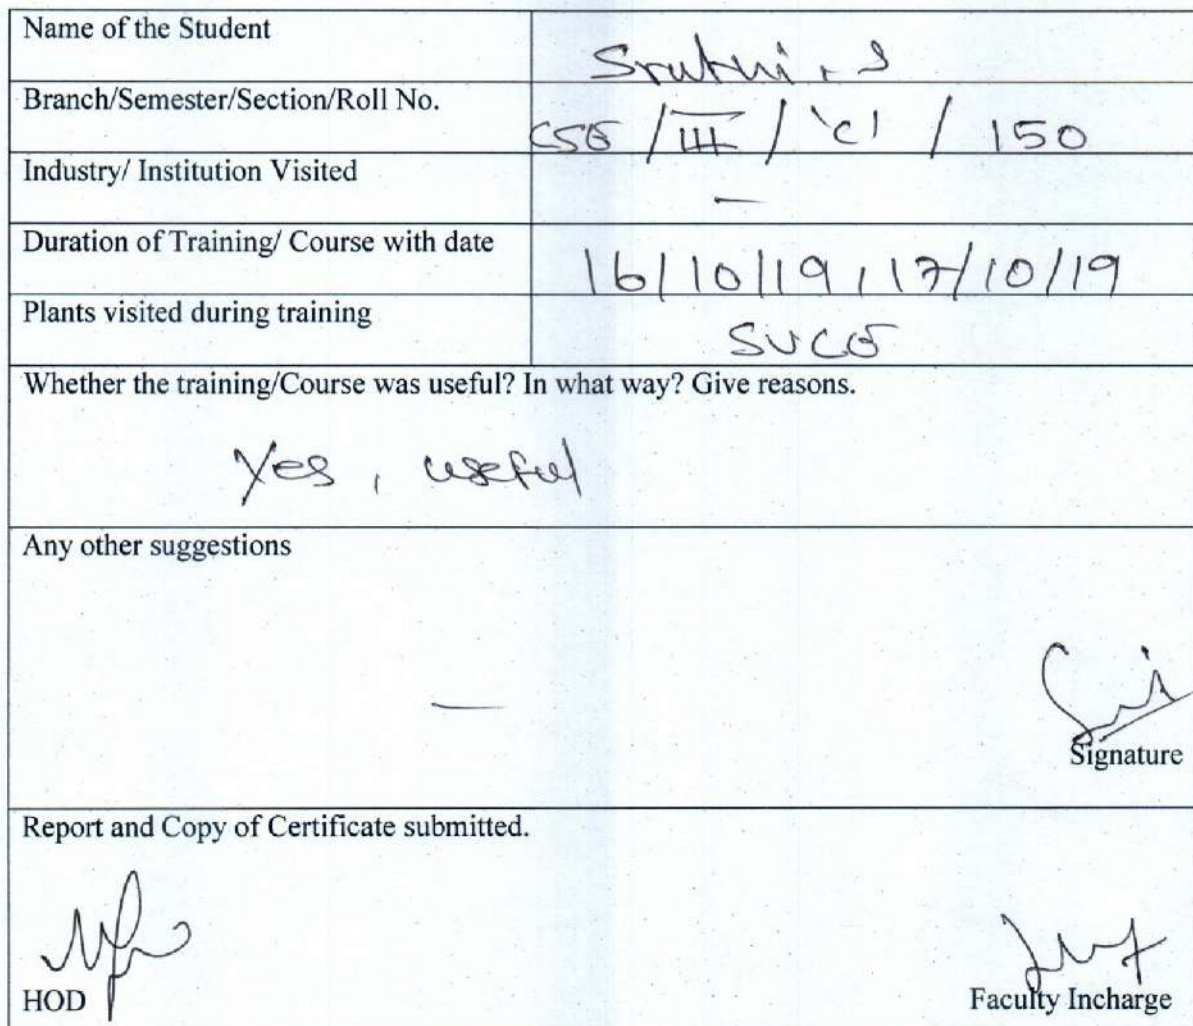 Name of the Student Sruthi . S
Branch/Semester/Section/Roll No. CSE / III / 'C' / 150
Industry/ Institution Visited —
Duration of Training/ Course with date 16/10/19, 17/10/19
Plants visited during training SVCE
Whether the training/Course was useful? In what way? Give reasons.
Yes, useful
Any other suggestions
—
Signature
Report and Copy of Certificate submitted.
HOD Faculty Incharge